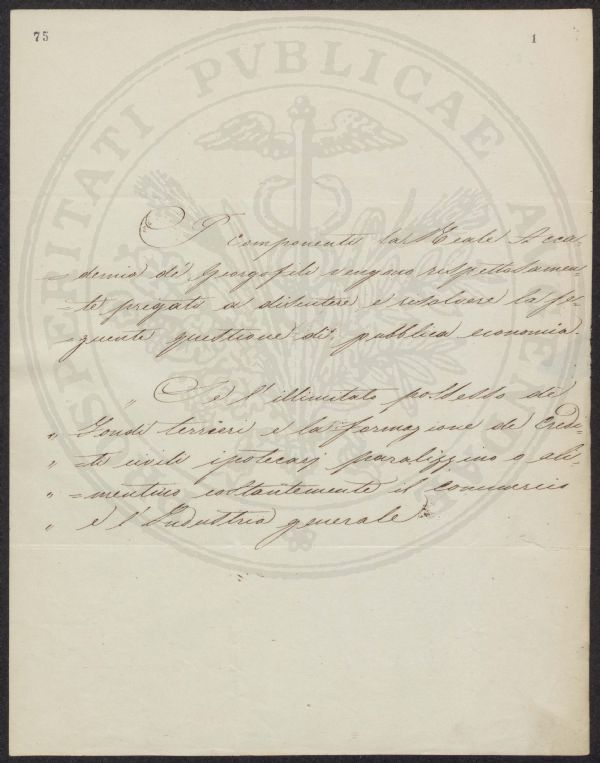 75
1
PROSPERITATI PVBLICAE AVGENDAE
I componenti la Reale Acca=
=demia de' Georgofili vengono rispettosamen=
=te pregati a discutere e risolvere la se=
=guente questione di pubblica economia.
„ Se l'illimitato possesso de'
„ Fondi terrieri e la formazione de' Credi=
„ =ti civili ipotecarj paralizzino o ali=
„ =mentino costantemente il commercio
„ e l'Industria generale